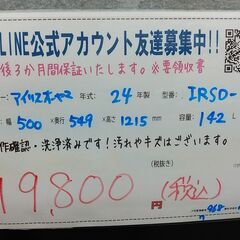 LINE公式アカウント友達募集中!!
後3か月間保証いたします。※要領収書
ー: アイリスオーヤマ 年式: 24年製 型番: IRSD-
幅 500 ×奥行 549 ×高さ 1215 mm 容量: 142 L
作確認・洗浄済みです!汚れやキズはございます。
(税抜き)
19,800円 (税込)